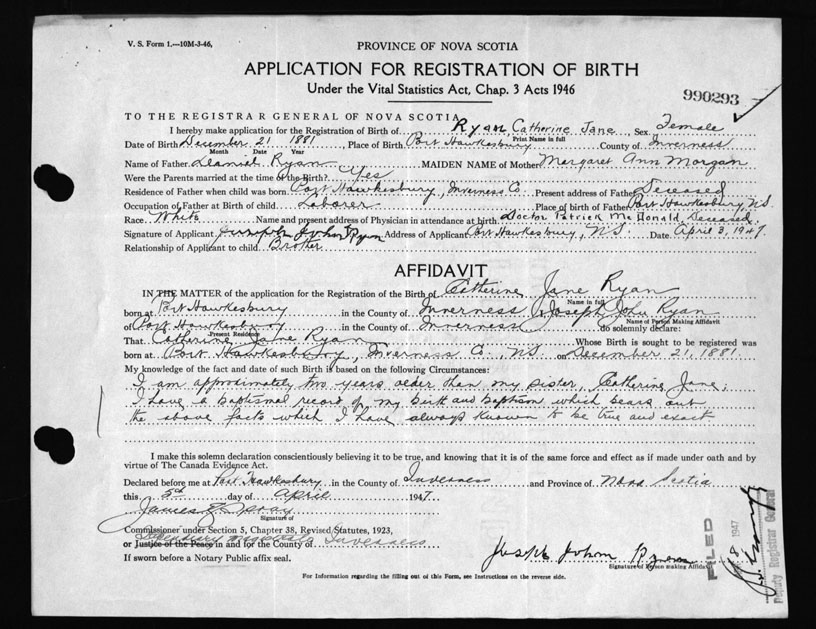 V. S. Form 1.—10M-3-46,
PROVINCE OF NOVA SCOTIA
APPLICATION FOR REGISTRATION OF BIRTH
Under the Vital Statistics Act, Chap. 3 Acts 1946
990293
TO THE REGISTRAR GENERAL OF NOVA SCOTIA
I hereby make application for the Registration of Birth of Ryan, Catherine Jane Sex Female
Print Name in full
Date of Birth December 21 1881 Place of Birth Port Hawkesbury County of Inverness
Month Date Year
Name of Father Ryan MAIDEN NAME of Mother Margaret Ann Morgan
Were the Parents married at the time of the Birth? Yes
Residence of Father when child was born Port Hawkesbury, Inverness Co. Present address of Father Deceased
Occupation of Father at Birth of child Laborer Place of birth of Father Port Hawkesbury N.S.
Race White Name and present address of Physician in attendance at birth Doctor Patrick McDonald, Deceased.
Signature of Applicant Joseph John Ryan Address of Applicant Port Hawkesbury, N.S. Date April 3, 1947
Relationship of Applicant to child Brother
AFFIDAVIT
IN THE MATTER of the application for the Registration of the Birth of Catherine Jane Ryan
Name in full
born at Port Hawkesbury in the County of Inverness I, Joseph John Ryan
Name of Person Making Affidavit
of Port Hawkesbury in the County of Inverness do solemnly declare:
Present Residence
That Catherine Jane Ryan Whose Birth is sought to be registered was
born at Port Hawkesbury, Inverness Co., N.S. on December 21, 1881
My knowledge of the fact and date of such Birth is based on the following Circumstances:
I am approximately two years older than my sister, Catherine Jane;
I have a baptismal record of my birth and baptism which bears out
the above facts which I have always known to be true and exact
I make this solemn declaration conscientiously believing it to be true, and knowing that it is of the same force and effect as if made under oath and by
virtue of The Canada Evidence Act.
Declared before me at Port Hawkesbury in the County of Inverness and Province of Nova Scotia
this 5th day of April 1947
James
Signature of
Commissioner under Section 5, Chapter 38, Revised Statutes, 1923,
or Justice of the Peace in and for the County of Inverness
If sworn before a Notary Public affix seal.
Joseph John Ryan
Signature of Person making Affidavit
For Information regarding the filling out of this Form, see Instructions on the reverse side.
FILED
8 1947
Deputy Registrar General